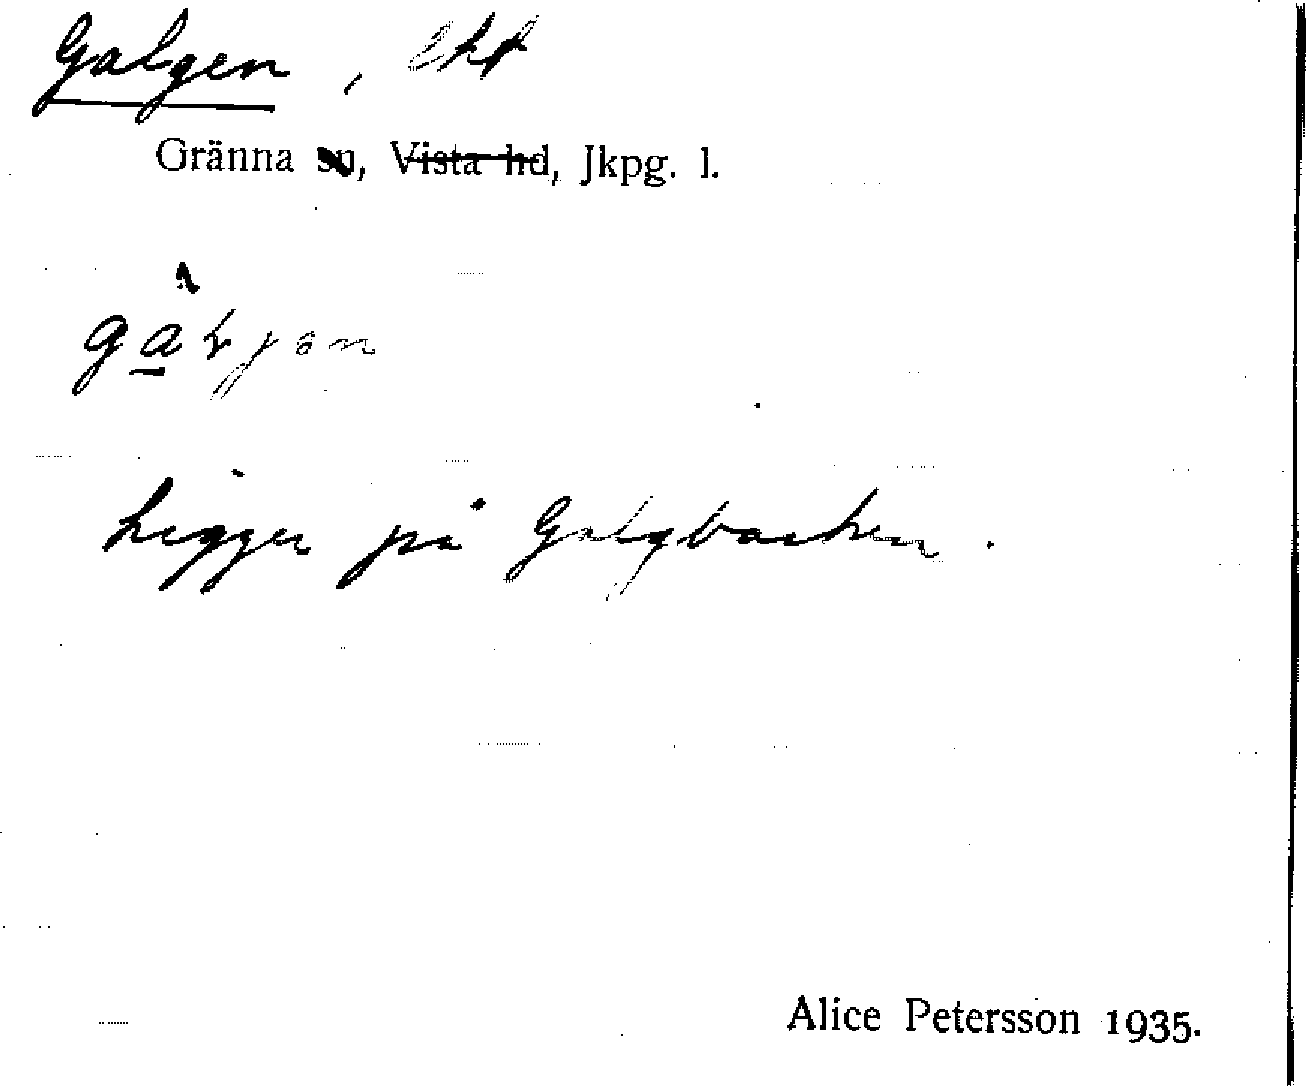 Galgen, Lht
Gränna sn, Vista hd, Jkpg. l.
galjən
Ligger på Galgbacken.
Alice Petersson 1935.